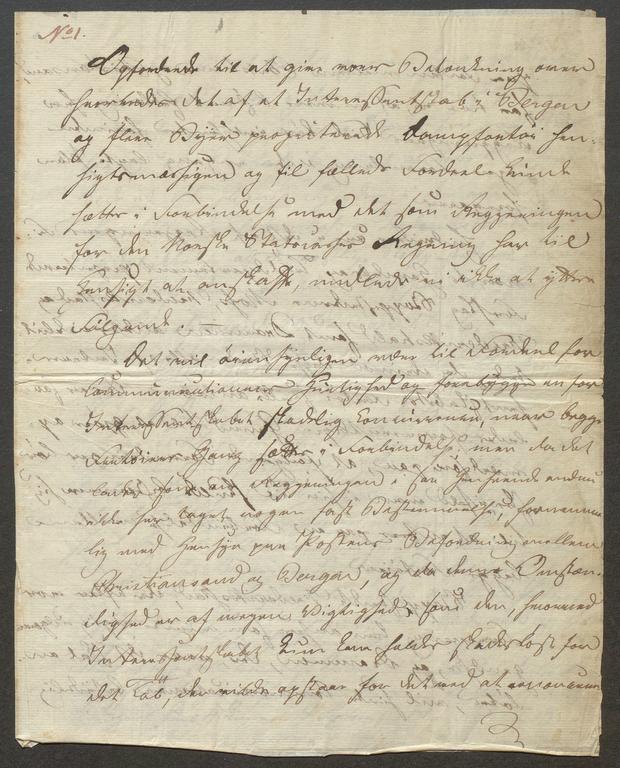 No 1.
Opfordrede til at give vores Betænkning over
hvorvidt det af et Interessentskab i Bergen
og flere Byer projecterede Dampfartøi hen-
sigtsmæssigen og til fælleds Fordeel kunde
sættes i Forbindelse med det som Regjeringen
for den Norske Statscasses Regning har til
Hensigt at anskaffe, undlade vi ikke at yttre
Følgende
Det vil øiensynligen være til Fordeel for
Communicationens Hurtighed og forebygge en for
Interessentskabet skadelig Concurrence, naar begge
Fartøiers Gang sættes i Forbindelse, men da det
lader som at Regjeringen i saa Henseende endnu
ikke har taget nogen fast Bestemmelse, fornemme-
lig med Hensyn paa Postens Befordring mellem
Christiansand og Bergen, og da denne Omstæn-
dighed er af megen Vigtighed, som den, hvorved
Interessentskabet kun kan holdes skadesløst for
det Tab, der vilde opstaae for det ved at